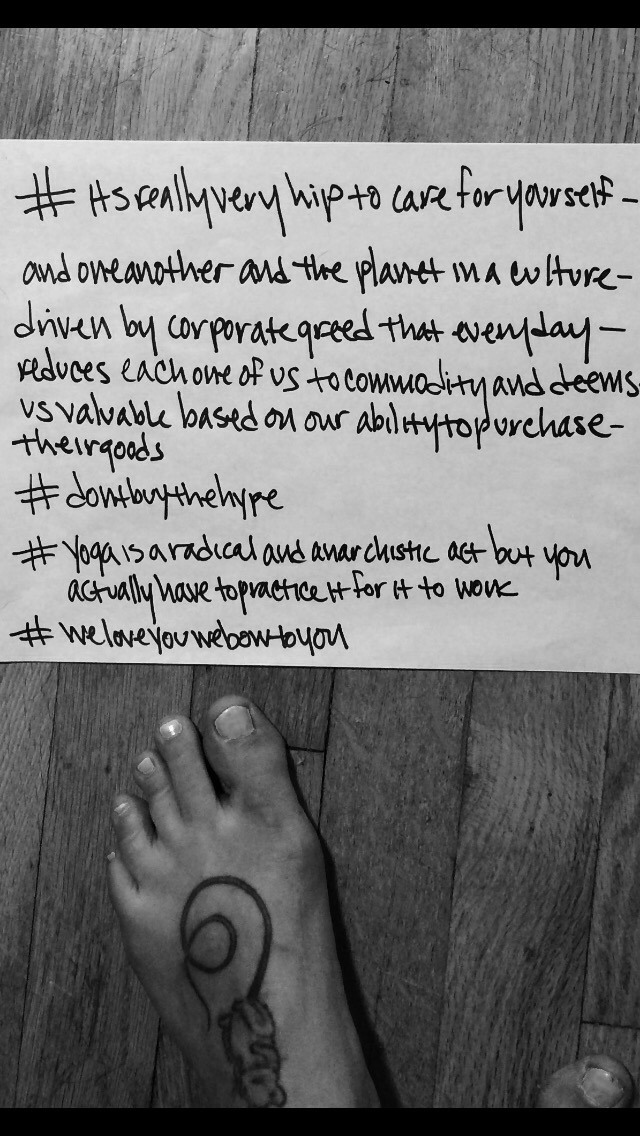 # itsreallyveryhiptocareforyourself-
andoneanotherandtheplanetinaculture-
drivenbycorporategreedthateveryday-
reduceseachoneofustocommodityanddeems
usvaluablebasedonourabilitytopurchase-
theirgoods
# dontbuythehype
# yoga is a radical and anarchistic act but you
actually have to practice it for it to work
# weloveyouwebowtoyou